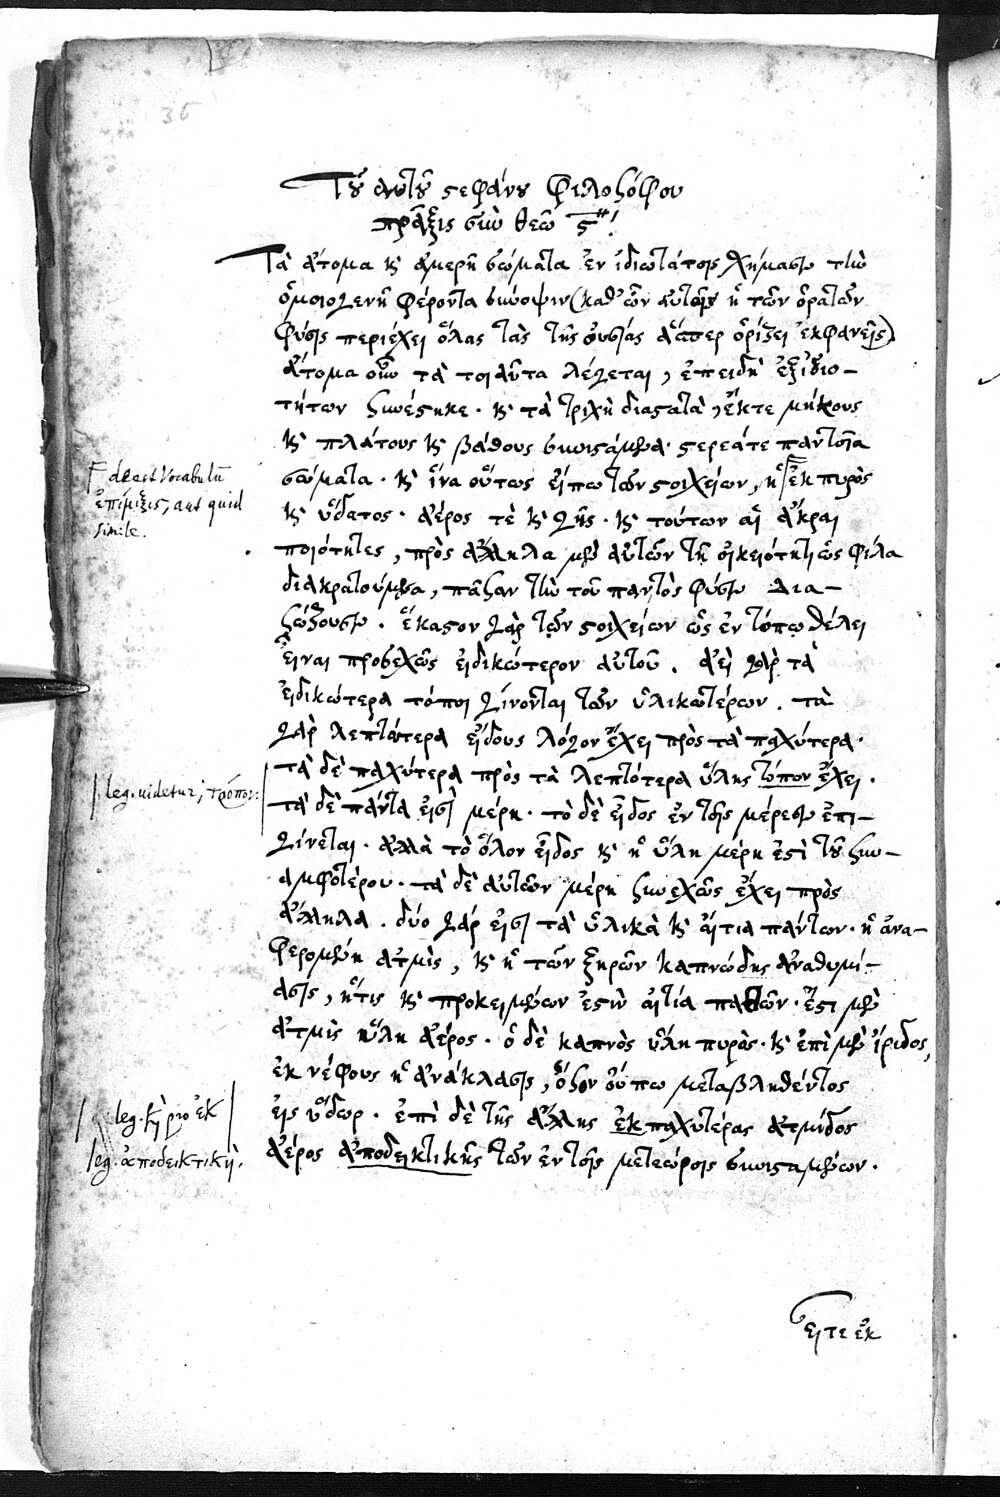 36
Τοῦ αὐτοῦ στεφάνου φιλοσόφου
πρᾶξις σὺν θεῷ ϛη΄
Τὰ ἄτομα κ ἀμερῆ σώματα ἐν ἰδιωτάτοις χήμασιν τὴν
ὁμοιογενῆ φέροντα σύνοψιν (καθ' ὧν αὐτοῖς ἡ τῶν ὁρατῶν
φύσις περιέχει ὅλας τὰς τῆς οὐσίας ἅσπερ ὁρίζει ἐκφανεῖς)
ἄτομα οὖν τὰ τοιαῦτα λέγεται, ἐπειδὴ ἐξ ἰδιο-
τήτων συνέστηκε. κ τὰ τριχῆ διαστατὰ, ἔκτε μήκους
κ πλάτους κ βάθους συνιστάμενα στερεά τε παντοῖα
σώματα. κ ἵνα οὕτως εἴπω τῶν στοιχείων, ἡ ἐκ πυρὸς
κ ὕδατος. ἀέρος τὲ κ γῆς. κ τούτων αἱ ἄκραι
ποιότητες, πρὸς ἄλληλα μὲν αὐτῶν τῇ οἰκειότητι ὡς φίλα
διακρατούμενα, πᾶσαν τὴν τοῦ παντὸς φύσιν δια-
σώζουσιν. ἕκαστον γὰρ τῶν στοιχείων ὡς ἐν τόπω θέλει
εἶναι προσεχῶς εἰδικώτερον αὐτοῦ. ἀεὶ γὰρ τὰ
εἰδικώτερα τόποι γίνονται τῶν ὑλικωτέρων. τὰ
γὰρ λεπτότερα εἴδους λόγον ἔχει πρὸς τὰ παχύτερα.
τὰ δὲ παχύτερα πρὸς τὰ λεπτότερα ὕλης τόπον ἔχει.
τὰ δὲ πάντα εἰσὶ μέρη. τὸ δὲ εἶδος ἐν τοῖς μέρεσιν ἐπι-
γίνεται. ἀλλὰ τὸ ὅλον εἶδος κ ἡ ὕλη μέρη ἐστὶ τοῦ συν-
αμφοτέρου. τὰ δὲ αὐτῶν μέρη συνεχῶς ἔχει πρὸς
ἄλληλα. δύο γάρ εἰσι τὰ ὑλικὰ κ αἴτια πάντων. ἡ ἀνα-
φερομένη ἀτμὶς, κ ἡ τῶν ξηρῶν καπνώδης ἀναθυμί-
ασις, ἥτις κ προκειμένων ἐστὶν αἰτία παθῶν. ἔστι μὲν
ἀτμὶς ἡ ὕλη ἀέρος. ὁ δὲ καπνὸς ὕλη πυρός. κ ἐπὶ μὲν ἴριδος,
ἐκ νέφους ἡ ἀνάκλασις, ὅσον οὔπω μεταβληθέντος
εἰς ὕδωρ. ἐπὶ δὲ τῆς ἄλλης ἐκ παχυτέρας ἀτμίδος
ἀέρος ἀποδεικτικῆς τῶν ἐν τοῖς μετεώροις συνισταμένων.
εἴτε ἐκ
Γ deest Vocabulū
ἐπίμιξις, aut quid
simile.
leg. uidetur, τρόπον.
leg. κὴ pro ἐκ
leg. ἀποδεικτικὴ.